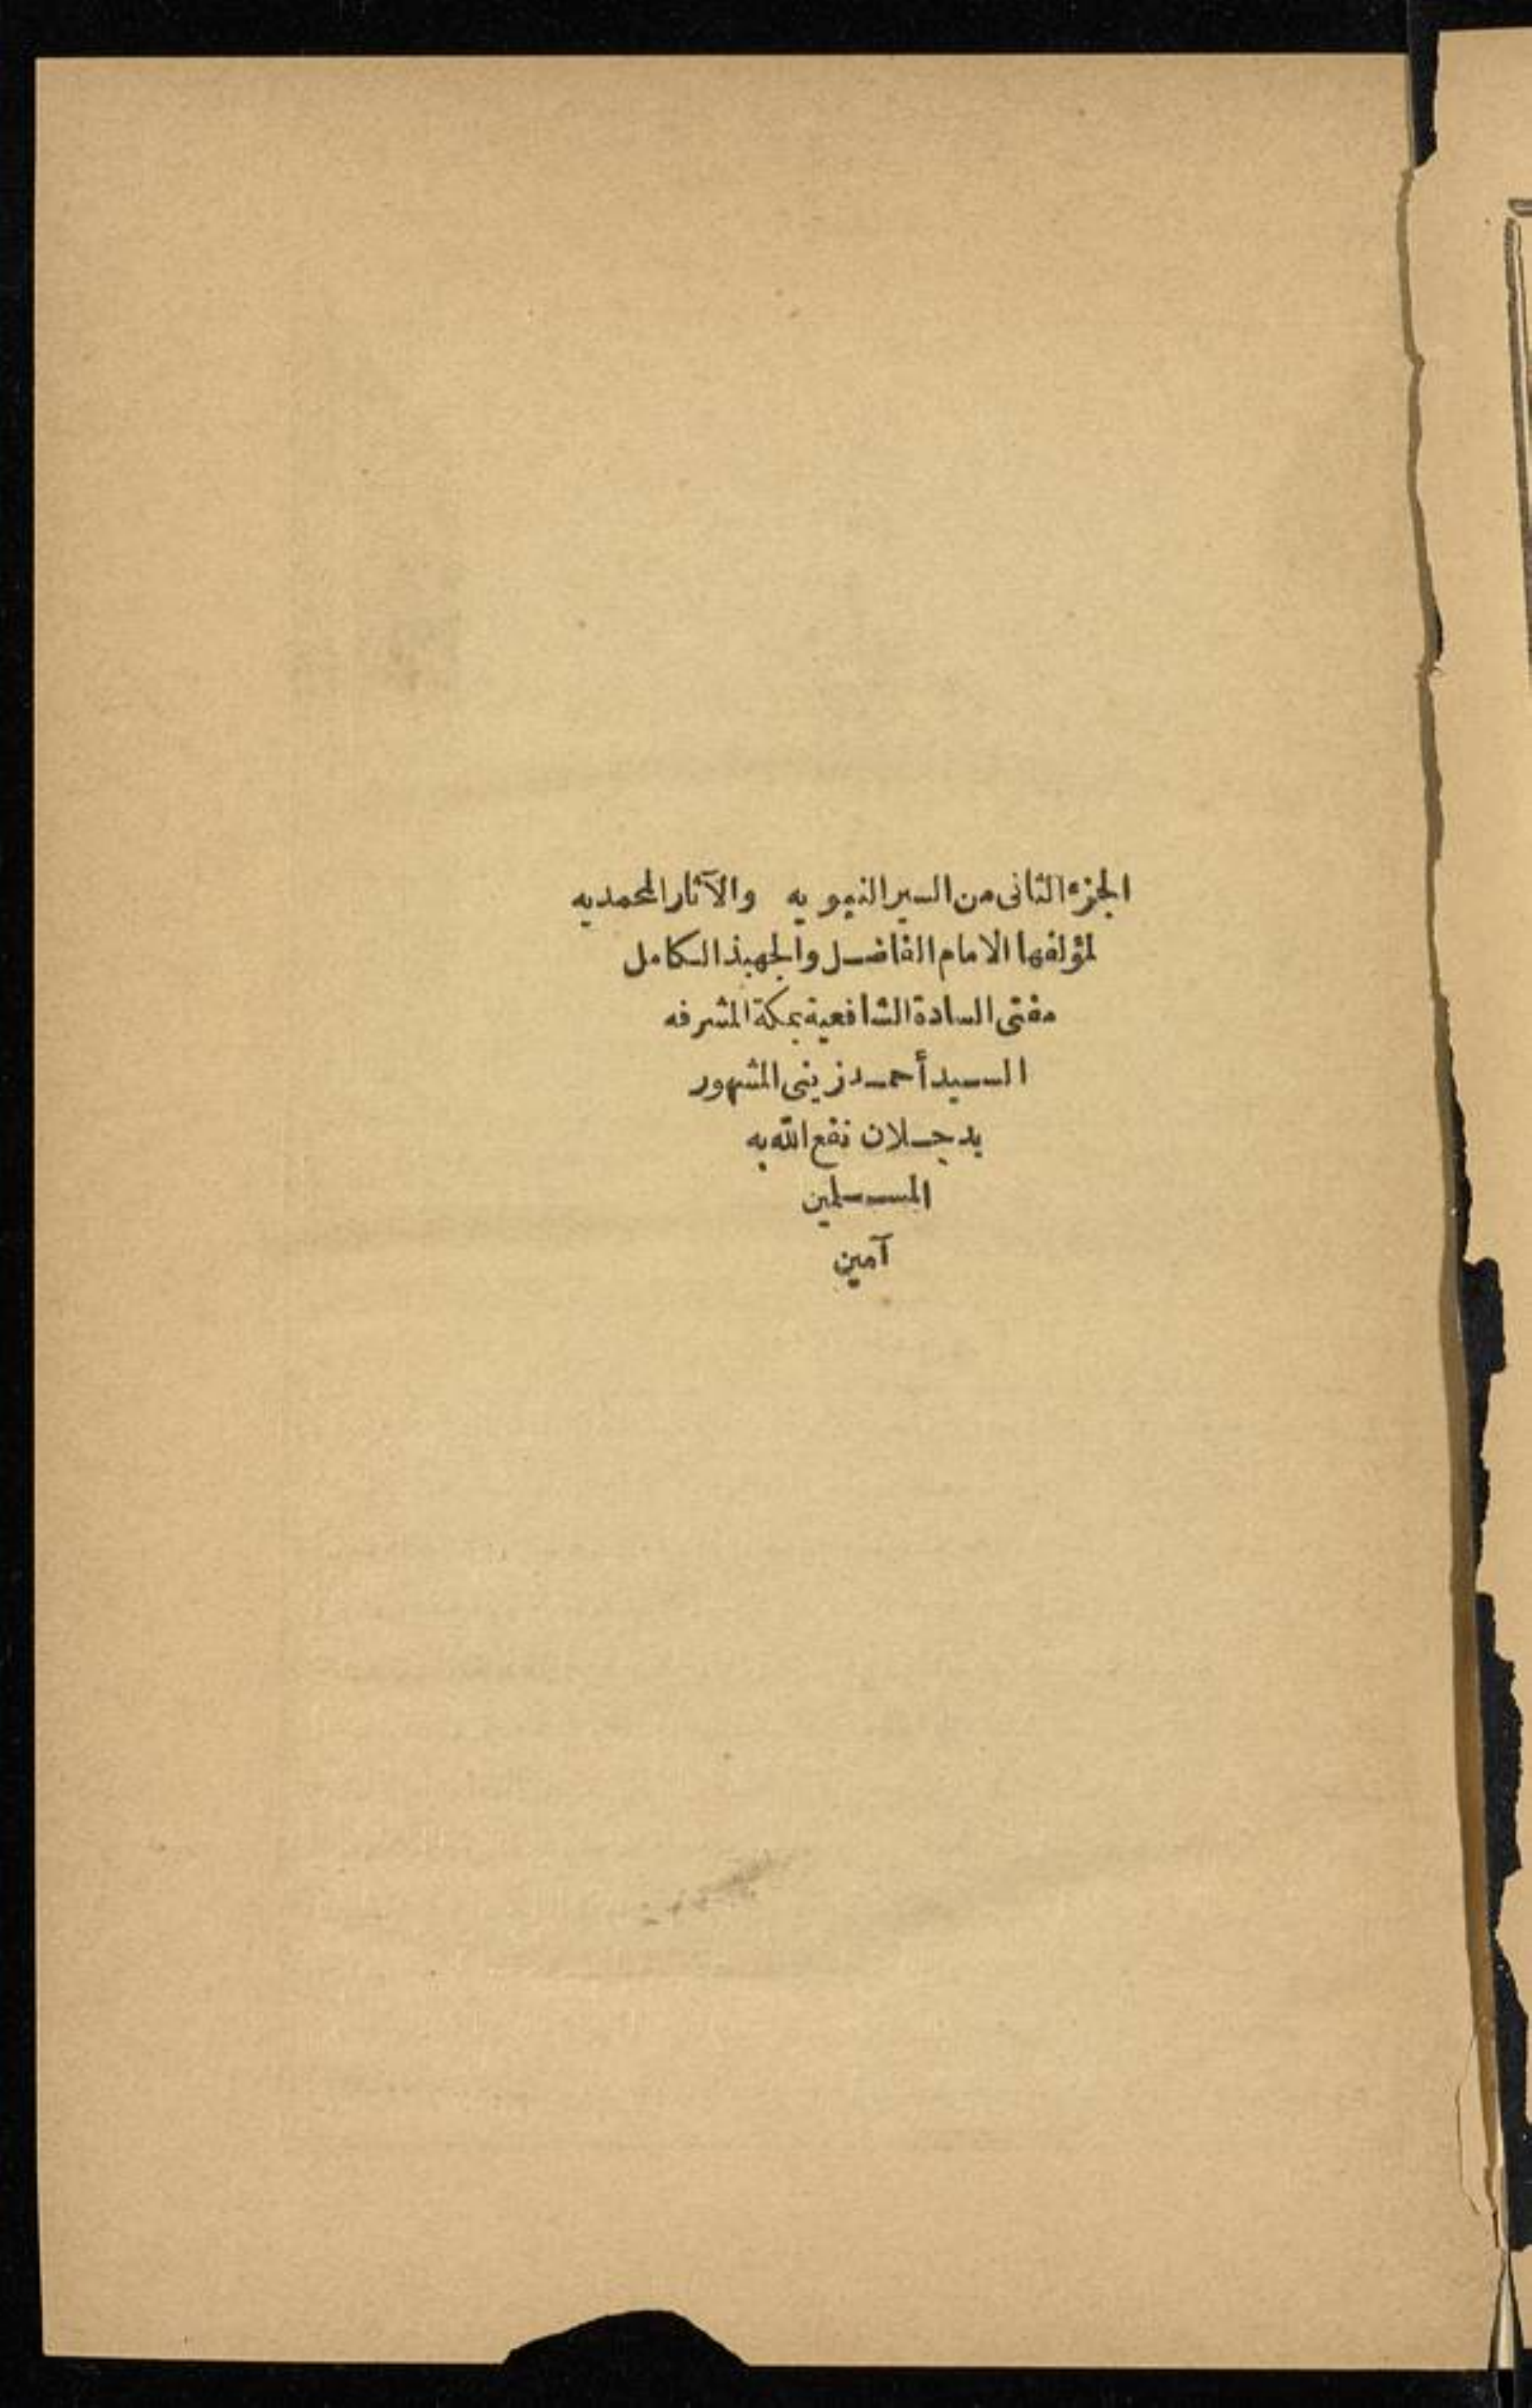 الجزء الثانى من السير النبويه والآثار المحمديه
لمؤلفها الامام الفاضل والجهبذ الكامل
مفتى السادة الشافعية بمكة المشرفه
السيد أحمد زينى المشهور
بدحلان نفع الله به
المسلمين
آمين